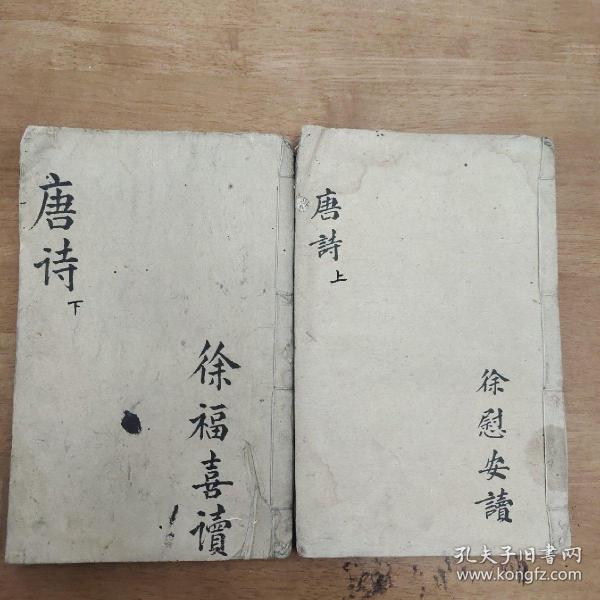 唐诗
下
徐福喜讀
唐詩
上
徐慰安讀
孔夫子旧书网
www.kongfz.com